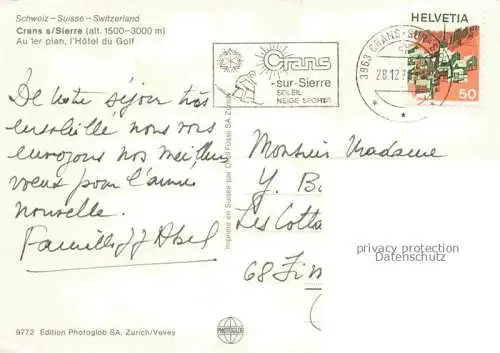 Schweiz-Suisse-Switzerland
Crans s/Sierre (alt. 1500-3000 m)
Au 1er plan, l'Hôtel du Golf
HELVETIA
50
3963 CRANS-SUR-
28.12.7
Crans
-sur-Sierre
SOLEIL
NEIGE SPORTS
De notre séjour très
ensoleillé nous vous
envoyons nos meilleurs
voeux pour l'année
nouvelle.
Famille JJ Abel
Imprimé en Suisse par Orell Füssli SA Zürich
Monsieur Madame
Y. B
Les Cotta
68 Fi
privacy protection
Datenschutz
PHOTOGLOB
9772 Edition Photoglob SA, Zurich/Vevey